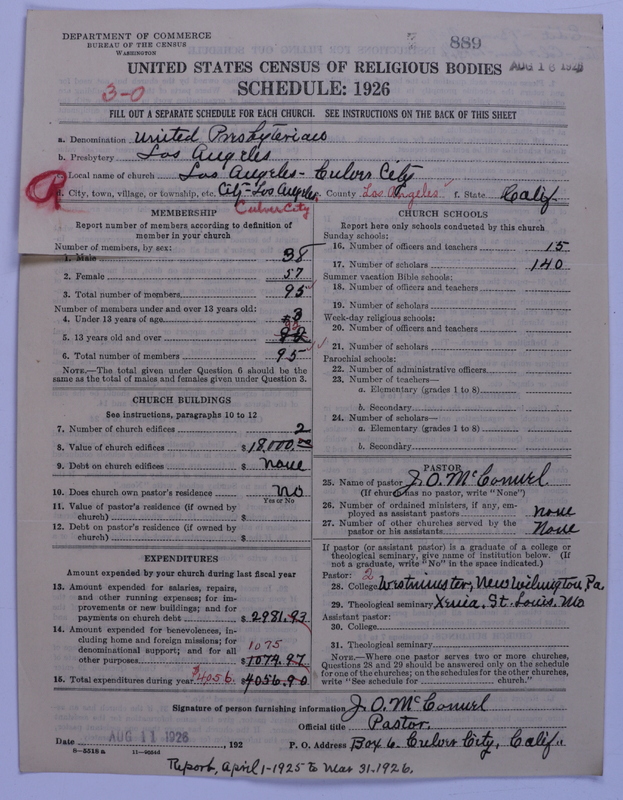 DEPARTMENT OF COMMERCE
BUREAU OF THE CENSUS
WASHINGTON
889
AUG 16 1926
UNITED STATES CENSUS OF RELIGIOUS BODIES
SCHEDULE: 1926
3-0
FILL OUT A SEPARATE SCHEDULE FOR EACH CHURCH. SEE INSTRUCTIONS ON THE BACK OF THIS SHEET
a. Denomination United Presbyterian
b. Presbytery Los Angeles
c. Local name of church Los Angeles - Culver City
d. City, town, village, or township, etc. City - Los Angeles County Los Angeles f. State Calif.
Culver City
MEMBERSHIP
Report number of members according to definition of
member in your church
Number of members, by sex:
1. Male 38
2. Female 57
3. Total number of members 95
Number of members under and over 13 years old:
4. Under 13 years of age 3
5. 13 years old and over
6. Total number of members 95
NOTE.—The total given under Question 6 should be the
same as the total of males and females given under Question 3.
CHURCH BUILDINGS
See instructions, paragraphs 10 to 12
7. Number of church edifices 2
8. Value of church edifices $ 18,000.00
9. Debt on church edifices $ none
10. Does church own pastor's residence no
Yes or No
11. Value of pastor's residence (if owned by
church) $
12. Debt on pastor's residence (if owned by
church) $
EXPENDITURES
Amount expended by your church during last fiscal year
13. Amount expended for salaries, repairs,
and other running expenses; for im-
provements or new buildings; and for
payments on church debt $ 2981.93
14. Amount expended for benevolences, in-
cluding home and foreign missions; for
denominational support; and for all
other purposes $ 1074.97
1075
15. Total expenditures during year $4056. $ 4056.90
CHURCH SCHOOLS
Report here only schools conducted by this church
Sunday schools:
16. Number of officers and teachers 15
17. Number of scholars 140
Summer vacation Bible schools:
18. Number of officers and teachers
19. Number of scholars
Week-day religious schools:
20. Number of officers and teachers
21. Number of scholars
Parochial schools:
22. Number of administrative officers
23. Number of teachers—
a. Elementary (grades 1 to 8)
b. Secondary
24. Number of scholars—
a. Elementary (grades 1 to 8)
b. Secondary
PASTOR
25. Name of pastor J. O. McConnel
(If church has no pastor, write "None")
26. Number of ordained ministers, if any, em-
ployed as assistant pastors none
27. Number of other churches served by the
pastor or his assistants None
If pastor (or assistant pastor) is a graduate of a college or
theological seminary, give name of institution below. (If
not a graduate, write "No" in the space indicated.)
Pastor: 2
28. College Westminster, New Wilmington, Pa
29. Theological seminary Xenia, St. Louis, Mo
Assistant pastor:
30. College
31. Theological seminary
NOTE.—Where one pastor serves two or more churches,
Questions 28 and 29 should be answered only on the schedule
for one of the churches; on the schedules for the other churches,
write "See schedule for church."
Signature of person furnishing information J. O. McConnel
Official title Pastor.
Date AUG 11 1926, 192 P. O. Address Box 6. Culver City, Calif.
8—5518 a 11—9034d
Report, April 1-1925 to Mar 31-1926.